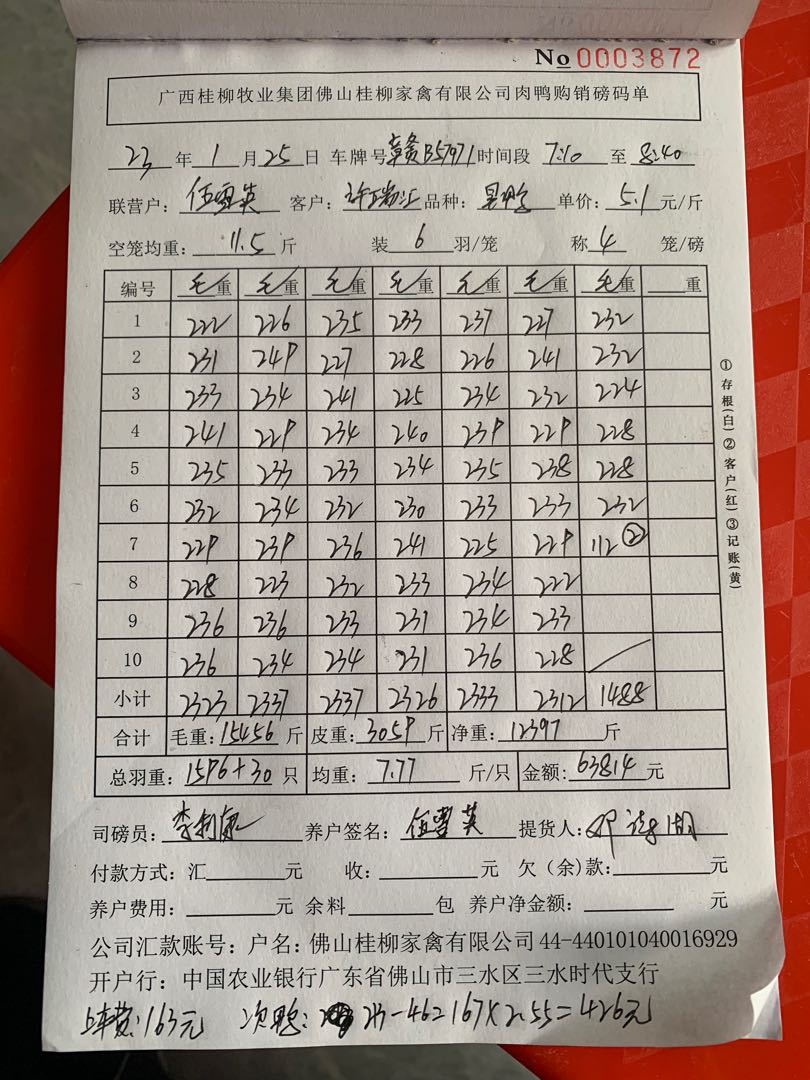 No 0003872
广西桂柳牧业集团佛山桂柳家禽有限公司肉鸭购销磅码单
23 年 1 月 25 日 车牌号 赣B57971 时间段 7:10 至 8:40
联营户: 伍雪英 客户: 品种: 单价: 5.1 元/斤
空笼均重: 11.5 斤 装 6 羽/笼 称 4 笼/磅
编号 毛重 毛重 毛重 毛重 毛重 毛重 毛重 重
1 222 226 235 233 237 227 232
2 231 249 227 228 226 241 232
3 233 234 241 225 234 232 224
4 241 229 234 240 239 229 228
5 235 233 233 234 235 238 228
6 232 234 232 230 233 233 232
7 229 239 236 241 225 229 112 ②
8 228 223 232 233 234 222
9 236 236 233 231 234 233
10 236 234 234 231 236 228
小计 2323 2337 2337 2326 2333 2312 1488
合计 毛重: 15456 斤 皮重: 3059 斤 净重: 12397 斤
总羽重: 1596+30 只 均重: 7.77 斤/只 金额: 63814 元
司磅员: 养户签名: 伍雪英 提货人:
付款方式: 汇 元 收: 元 欠(余)款: 元
养户费用: 元 余料 包 养户净金额: 元
公司汇款账号: 户名: 佛山桂柳家禽有限公司 44-440101040016929
开户行: 中国农业银行广东省佛山市三水区三水时代支行
上车费: 163元 次鸭: 213-46=167×2.55=426元
①存根(白)②客户(红)③记账(黄)